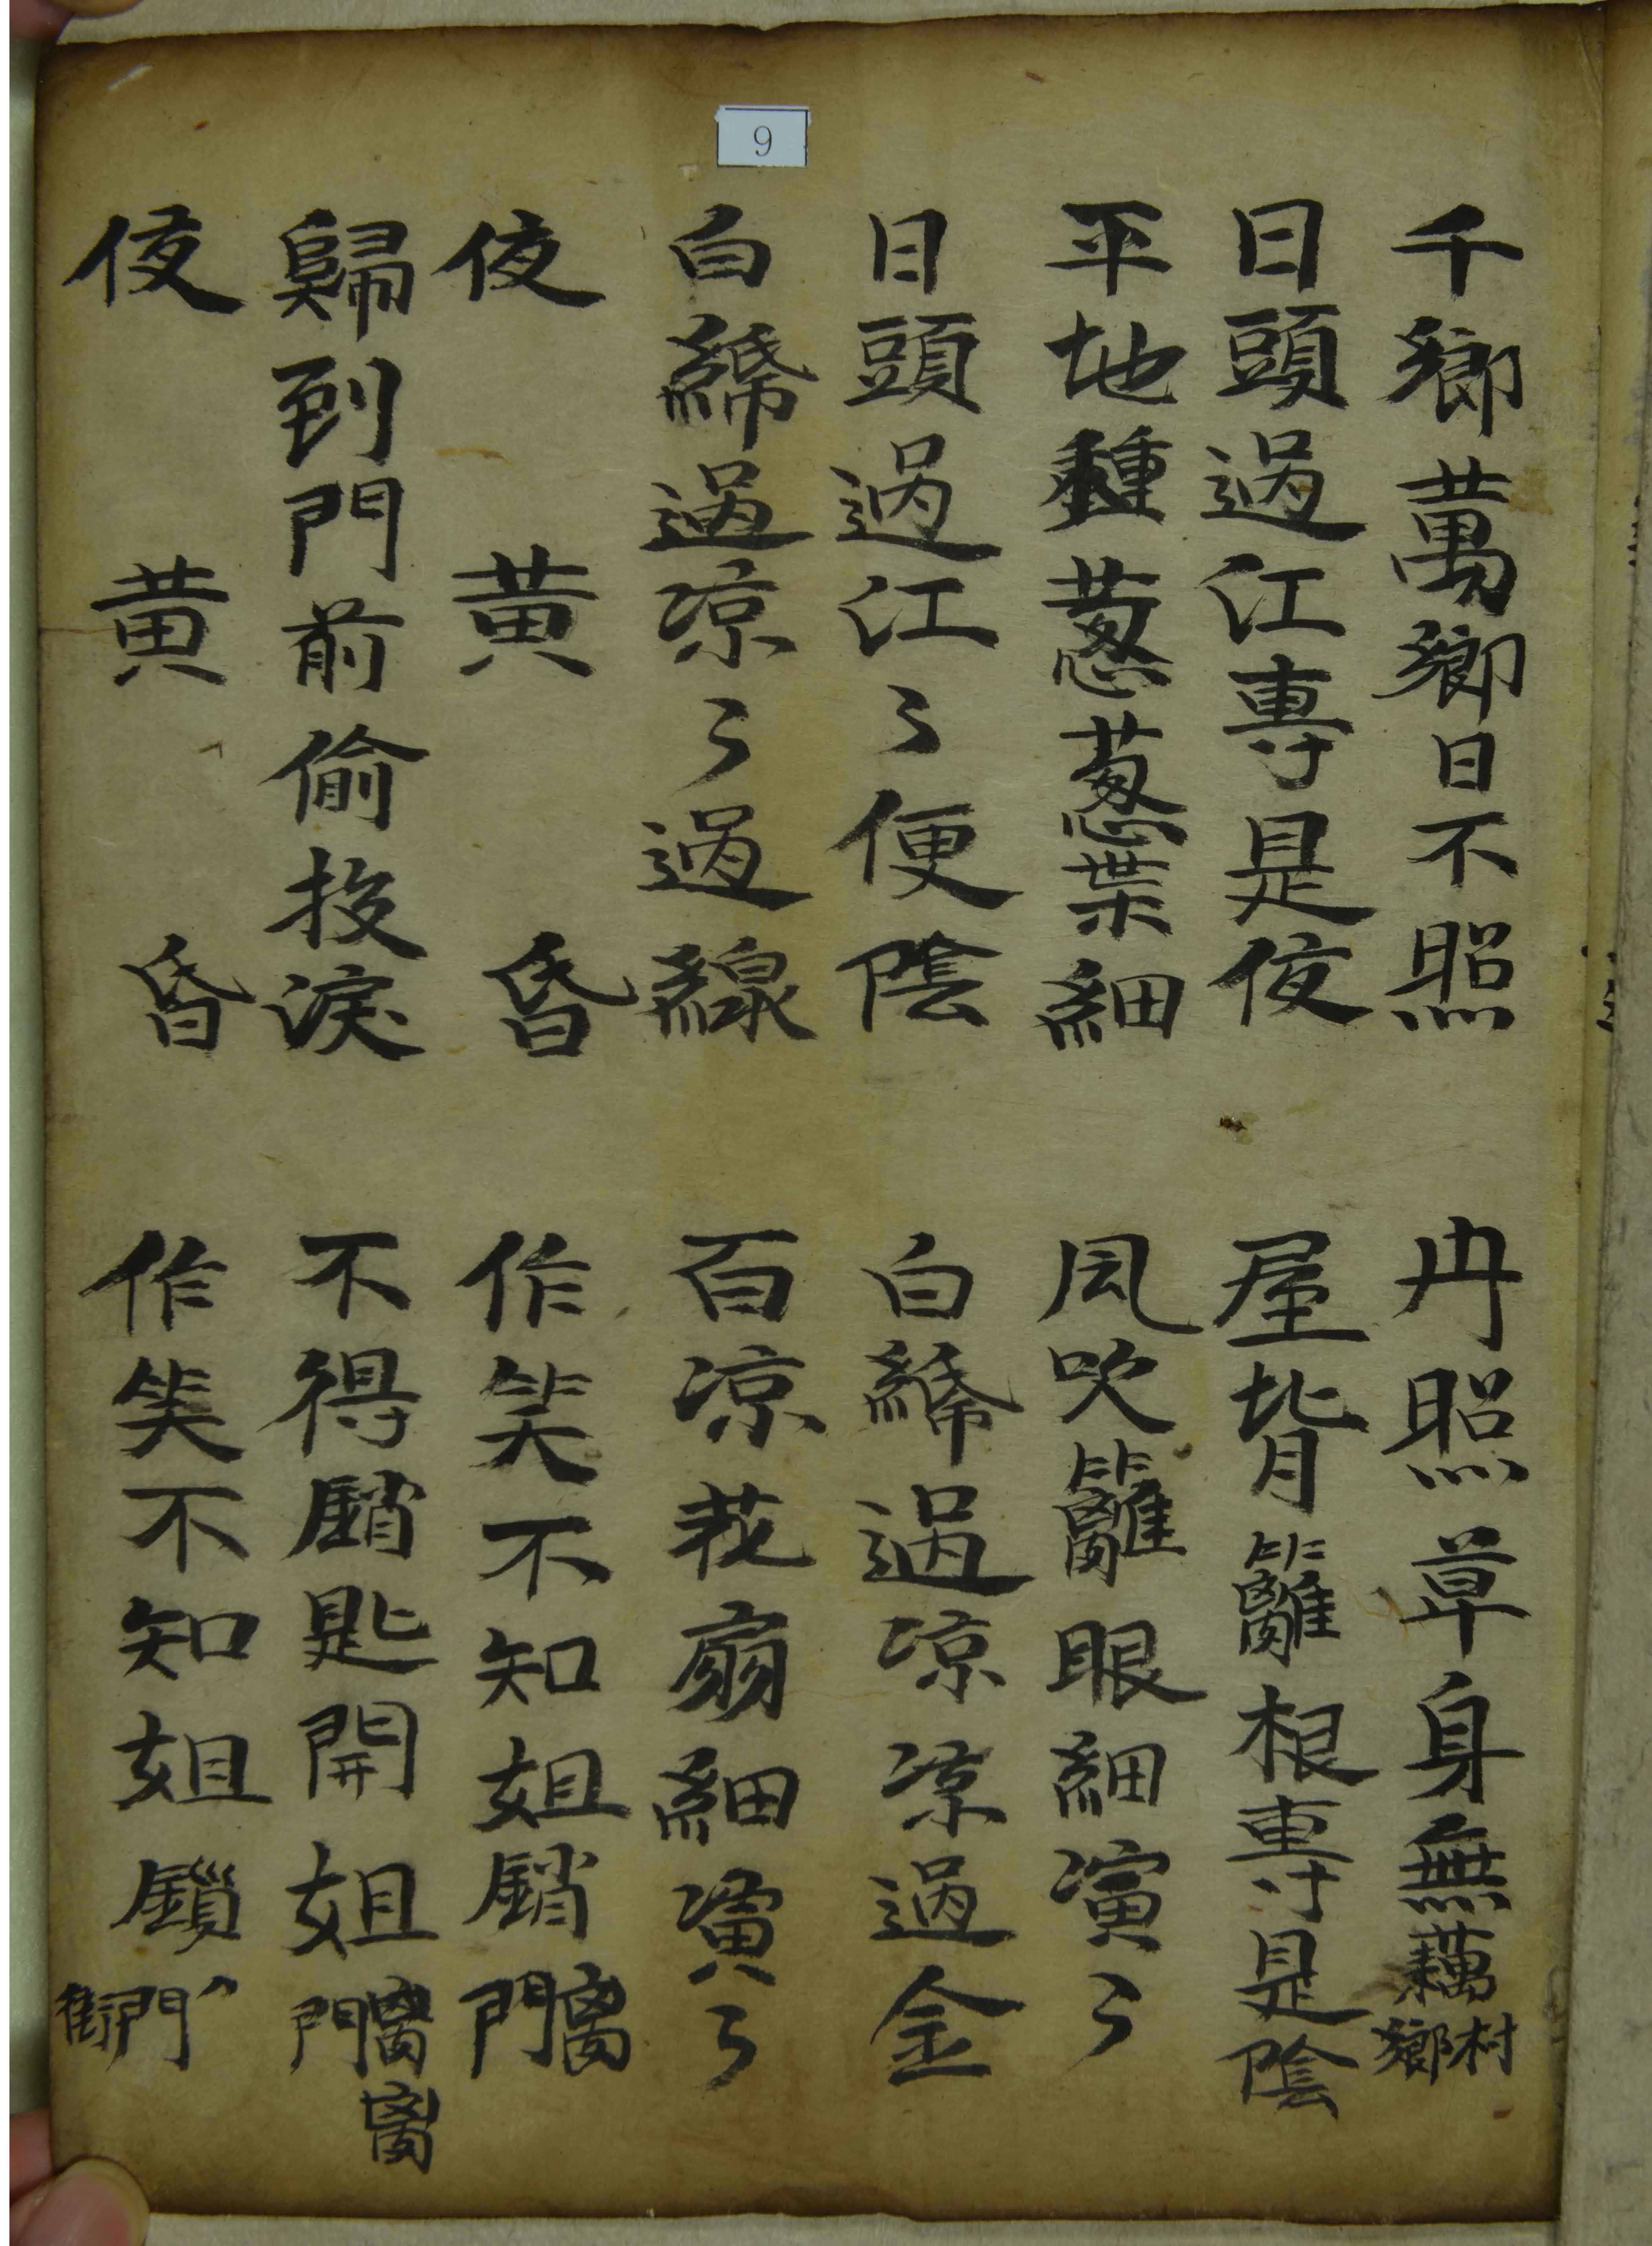 9
千鄉萬鄉日不照 冉照草身無藕村鄉
日頭過江專是夜 屋背籬根專是陰
平地種葱葱葉細 風吹籬眼細演〻
日頭過江〻便陰 白綿過凉凉過金
白綿過凉〻過線 百凉莪扇細演〻
夜黄昏 作笑不知姐銷門
歸到門前偷投淚 不得銷匙開姐門
夜黄昏 作笑不知姐鎖門